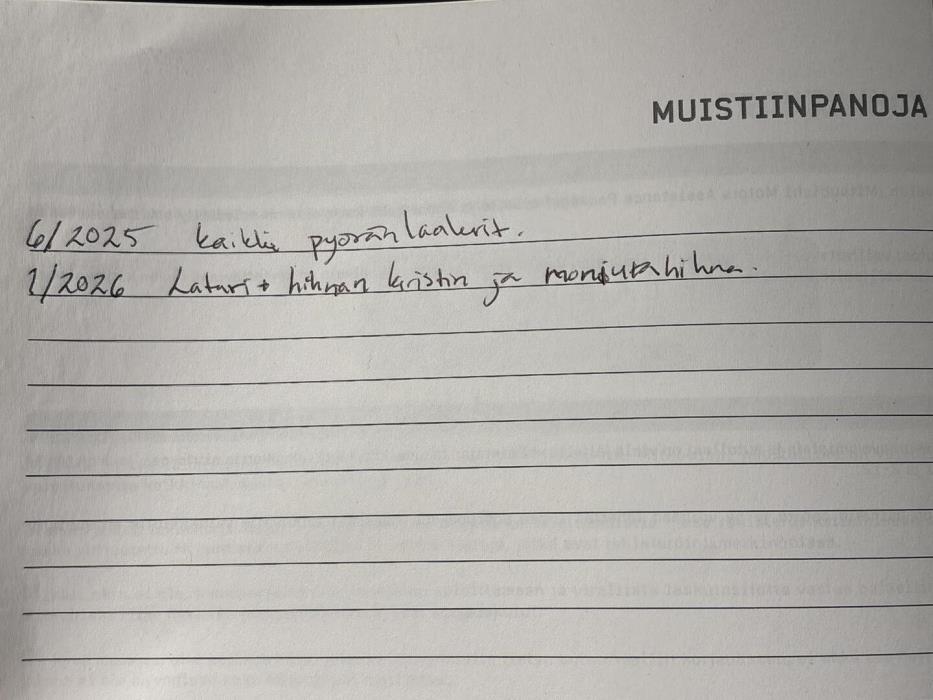 MUISTIINPANOJA
6/2025 kaikki pyöränlaakerit.
1/2026 Laturi + hihnan kiristin ja moniurahihna.